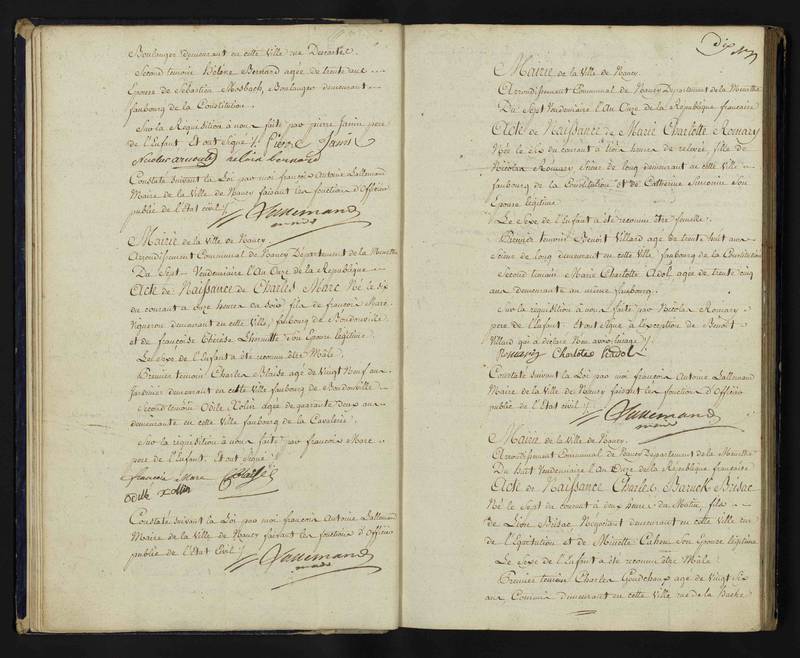 Boulanger demeurant en cette Ville rue Descartes.
Second temoin Hélène Bernard agée de trente
Epouse de Sébastien Mosbach, Boulanger demeurant
faubourg de la Constitution.
Sur la Réquisition à nous faite par pierre Janin pere
de l'Enfant. Et ont signé Pierre Janin
Nicolas arnould helaine bernard
Constaté suivant la Loi par moi françois Antoine Lallemand
Maire de la Ville de Nancy faisant les fonction d'Officier
public de l'état civil
Lallemand
maire
Mairie de la Ville de Nancy.
Arrondissement Communal de Nancy Département de la Meurthe
Du Sept Vendemiaire l'An Onze de la République
Acte de Naissance de Charles Marc Né le six
du courant à onze heures du soir, fils de françois Marc
Vigneron demeurant en cette Ville, faubourg de Boudonville
et de françoise Thérèse Son Epouse légitime.
Le Sexe de l'Enfant a été reconnu être Mâle.
Premier temoin Charles Blaise agé de Vingt Neuf ans
Jardinier demeurant en cette Ville faubourg de Boudonville
Second temoin Odile Xolin agée de quarante deux ans
demeurante en cette Ville faubourg de la Cavalerie.
Sur la réquisition à nous faite par françois Marc
pere de l'Enfant. Et ont signé
francois Marc CBlaise
Odile xollin
Constaté suivant la Loi par moi françois Antoine Lallemand
Maire de la Ville de Nancy faisant les fonctions d'Officier
public de l'état Civil
Lallemand
maire
Dix
Mairie de la Ville de Nancy.
Arrondissement Communal de Nancy Département de la Meurthe
Du Sept Vendemiaire l'An Onze de la République française
Acte de Naissance de Marie Charlotte Romary
Née le six du courant à trois heures de relevée, fille de
Nicolas Romary Scieur de long demeurant en cette Ville
faubourg de la Constitution et de Catherine Son
Epouse légitime.
Le Sexe de l'Enfant a été reconnu être femelle.
Premier temoin Benoit Villard agé de trente huit ans
Scieur de long demeurant en cette Ville, faubourg de la Constitution
Second temoin Marie Charlotte Adol agée de trente cinq
ans demeurante au même faubourg.
Sur la réquisition à nous faite par Nicolas Romary
pere de l'Enfant. Et ont signé à l'exception de Benoit
Villard qui a déclaré n'en avoir l'usage
Romary Charlotes hadol
Constaté suivant la Loi par moi françois Antoine Lallemand
Maire de la Ville de Nancy faisant les fonctions d'Officier
public de l'état Civil
Lallemand
maire
Mairie de la Ville de Nancy.
Arrondissement Communal de Nancy Département de la Meurthe
Du huit Vendemiaire l'An Onze de la République française
Acte de Naissance Charles Baruck Brisac
Né le Sept du courant à deux heures du Matin, fils
de Lion Brisac Negociant demeurant en cette Ville rue
de l'Equitation et de Minette Cahen Son Epouse légitime
Le Sexe de l'Enfant a été reconnu être Mâle.
Premier temoin Charles Goudchaux agé de Vingt Six
ans Commis demeurant en cette Ville rue de la hache